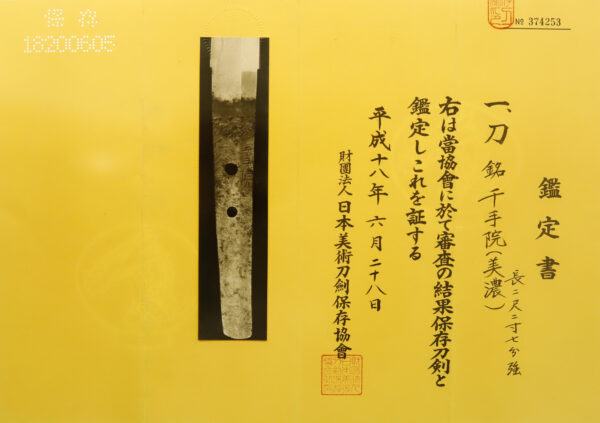 保存
18200605
№ 374253
鑑定書
一、刀 銘 千手院(美濃)
長二尺二寸七分強
右は當協會に於て審査の結果保存刀剣と
鑑定しこれを証する
平成十八年 六月 二十八日
財團法人 日本美術刀劍保存協會